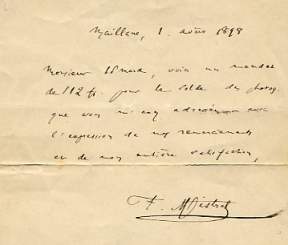 Maillane, 1. août 1898
Monsieur, voici un mandat
de 112 fr. pour le solde des photog.
que vous m'avez adressées avec
l'expression de mes remerciements
et de mon entière satisfaction,
F. Mistral